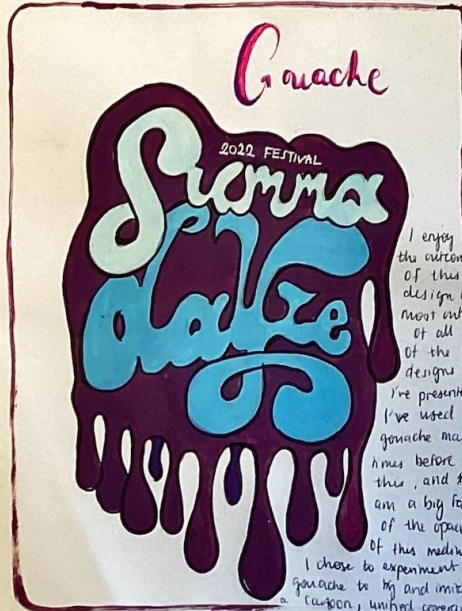 Gouache
2022 FESTIVAL
Summa
daze
I enjoy
the outcom
of this
design
most out
of all
of the
designs
I've presente
I've used
gouache ma
times before
this, and
am a big fa
of the opac
of this mediu
I chose to experiment
gouache to try and imit
a cartoon, unified